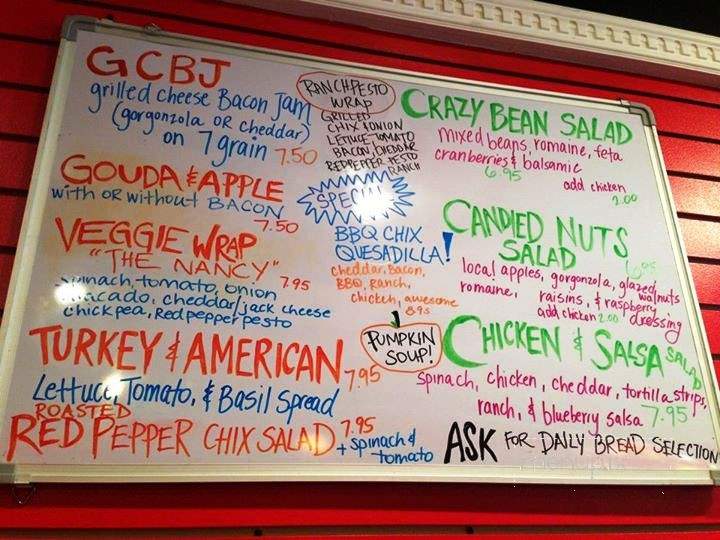 GCBJ
grilled cheese Bacon Jam
(gorgonzola OR cheddar)
on 7 grain 7.50
GOUDA & APPLE
with or without BACON
7.50
VEGGIE WRAP
"THE NANCY"
spinach, tomato, onion 7.95
avacado, cheddar/jack cheese
chickpea, Red pepper pesto
TURKEY & AMERICAN 7.95
Lettuce, Tomato, & Basil Spread
ROASTED
RED PEPPER CHIX SALAD 7.95
+ spinach & tomato
RANCH PESTO
WRAP
GRILLED
CHIX & ONION
LETTUCE TOMATO
BACON, CHEDDAR
RED PEPPER PESTO
RANCH
SPECIAL
BBQ CHIX
QUESADILLA!
cheddar, Bacon,
BBQ, Ranch,
chicken, awesome
8.95
PUMPKIN
SOUP!
CRAZY BEAN SALAD
mixed beans, romaine, feta
cranberries & balsamic
6.95
add chicken
2.00
CANDIED NUTS
SALAD 6.95
local apples, gorgonzola, glazed walnuts
romaine, raisins, & raspberry dressing
add chicken 2.00
CHICKEN & SALSA SALAD
spinach, chicken, cheddar, tortilla strips,
ranch, & blueberry salsa 7.95
ASK FOR DAILY BREAD SELECTION